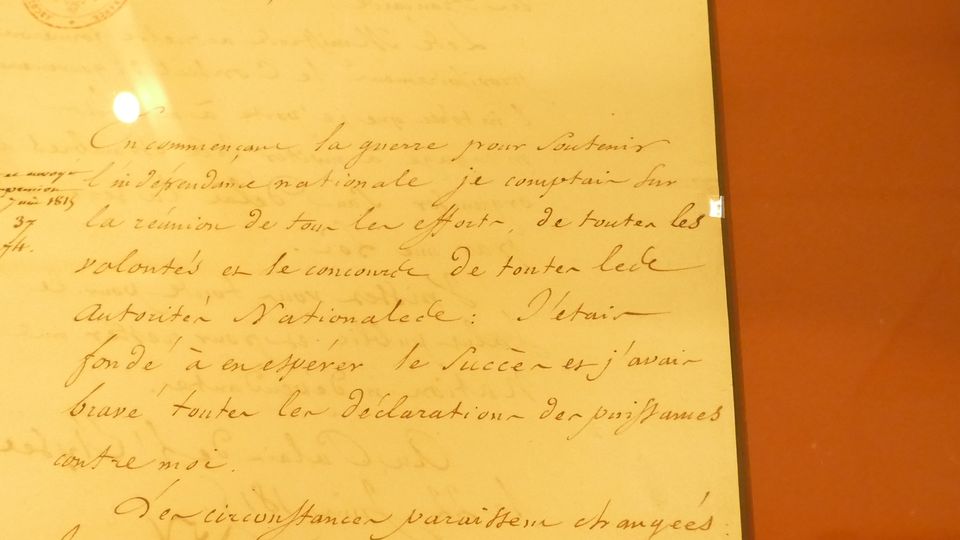 En commençant la guerre pour soutenir
l'indépendance nationale, je comptais sur
la réunion de tous les efforts, de toutes les
volontés et le concours de toutes les
autorités Nationales : J'étais
fondé à en espérer le succès et j'avais
bravé toutes les déclarations des puissances
contre moi.
Les circonstances paraissent changées.
1815
37